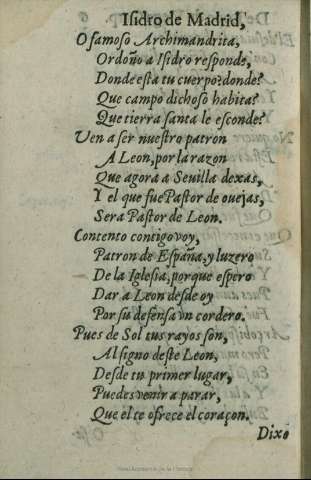 Isidro de Madrid,
O famoso Archimandrita,
Ordoño a Isidro responde,
Donde esta tu cuerpo? donde?
Que campo dichoso habita?
Que tierra santa le esconde?
Ven a ser nuestro patron
A Leon, por la razon
Que agora a Seuilla dexas,
Y el que fue Pastor de ouejas,
Sera Pastor de Leon.
Contento contigo voy,
Patron de España, y luzero
De la Iglesia, porque espero
Dar a Leon desde oy
Por su defensa vn cordero.
Pues de Sol tus rayos son,
Al signo deste Leon,
Desde tu primer lugar,
Puedes venir a parar,
Que el te ofrece el coraçon.
Dixo